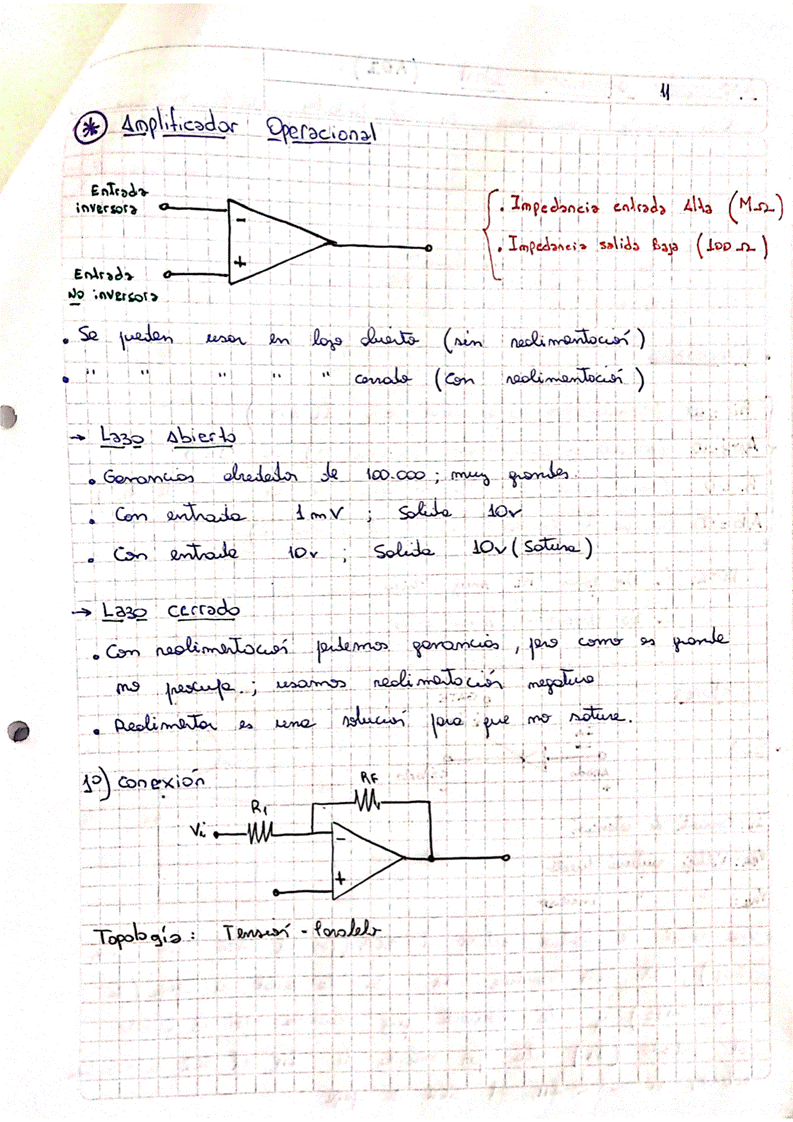 11
* Amplificador Operacional
Entrada
inversora
-
+
Entrada
No inversora
. Impedancia entrada Alta (MΩ)
. Impedancia salida Baja (100 Ω)
. Se pueden usar en lazo abierto (sin realimentación)
. " " " " " cerrado (con realimentación)
→ Lazo Abierto
. Ganancias alrededor de 100.000; muy grandes.
. Con entrada 1mV ; Salida 10v
. Con entrada 10v ; Salida 10v (satura)
→ Lazo cerrado
. Con realimentación perdemos ganancias, pero como es grande
no preocupa.; usamos realimentación negativa
. Realimentar es una solución para que no sature.
1º) conexión
RF
R1
Vi
-
+
Topología: Tensión - Paralelo